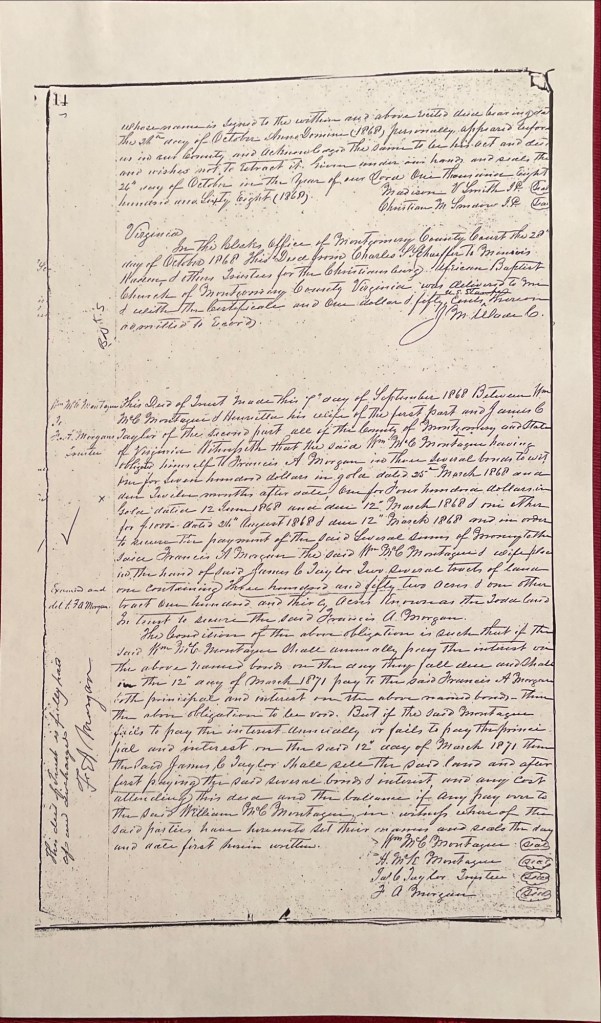 14
whose name is signed to the within and above writed deed bearing date
the 26th day of October Anno Domini (1868) personally appeared before
us in our County and acknowledged the same to be his act and deed
and wishes not to retract it. Given under our hands and seals the
26th day of October in the Year of our Lord One thousand Eight
hundred and Sixty Eight (1868).
Madison V Smith J.P. Seal
Christian M J.P.
Virginia
In the Clerks Office of Montgomery County Court the 28th
day of October 1868 This Deed from Charles S Schaeffer to Minnis
& others Trustees for the Christiansburg African Baptist
Church of Montgomery County Virginia was delivered to me
U.S. Stamps
& with the Certificate and One dollar & fifty Cents thereon
admitted to record.
M. Wade C.
Wm McC Montague
To
F. A. Morgans
Trustee
This Deed of Trust made this 7th day of September 1868 Between Wm
McC Montague & Henrietta his wife of the first part and James C
Taylor of the second part all of the County of Montgomery and State
of Virginia Witnesseth that the said Wm McC Montague having
obliged himself to Francis A Morgan in three several bonds to wit
one for seven hundred dollars in gold dated 25th March 1868 and
due Twelve months after date, One for Four hundred dollars in
Gold dated 12 June 1868 and due 12th March 1868 & one other
for $1000 dated 24th August 1868 & due 12th March 1868 and in order
to secure the payment of the said several sums of money to the
said Francis A Morgan the said Wm McC Montague & wife place
in the hand of said James C Taylor Two several tracts of land
one containing three hundred and fifty two acres & one other
tract One hundred and thirty acres Known as the Todd land
In trust to secure the said Francis A. Morgan.
Examined and
del. to F A Morgan
The Condition of the above obligation is such that if the
said Wm McC Montague shall annually pay the interest on
the above named bonds on the day they fall due and shall
in the 12th day of March 1871 pay to the said Francis A Morgan
both principal and interest on the above named bonds then
the above obligation to be void. But if the said Montague
fails to pay the interest annually or fails to pay the princi-
pal and interest on the said 12th day of March 1871 then
the said James C Taylor shall sell the said land and after
first paying the said several bonds & interest, and any cost
attending this deed and the balance if any pay over to
the said William McC Montague, in witness whereof the
said parties have hereunto set their names and seals the day
and date first herein written.
Wm McC Montague Seal
H. McC Montague Seal
Jas C Taylor Trustee Seal
F A Morgan Seal
This deed of Trust is fully paid
off and discharged
F. A. Morgan